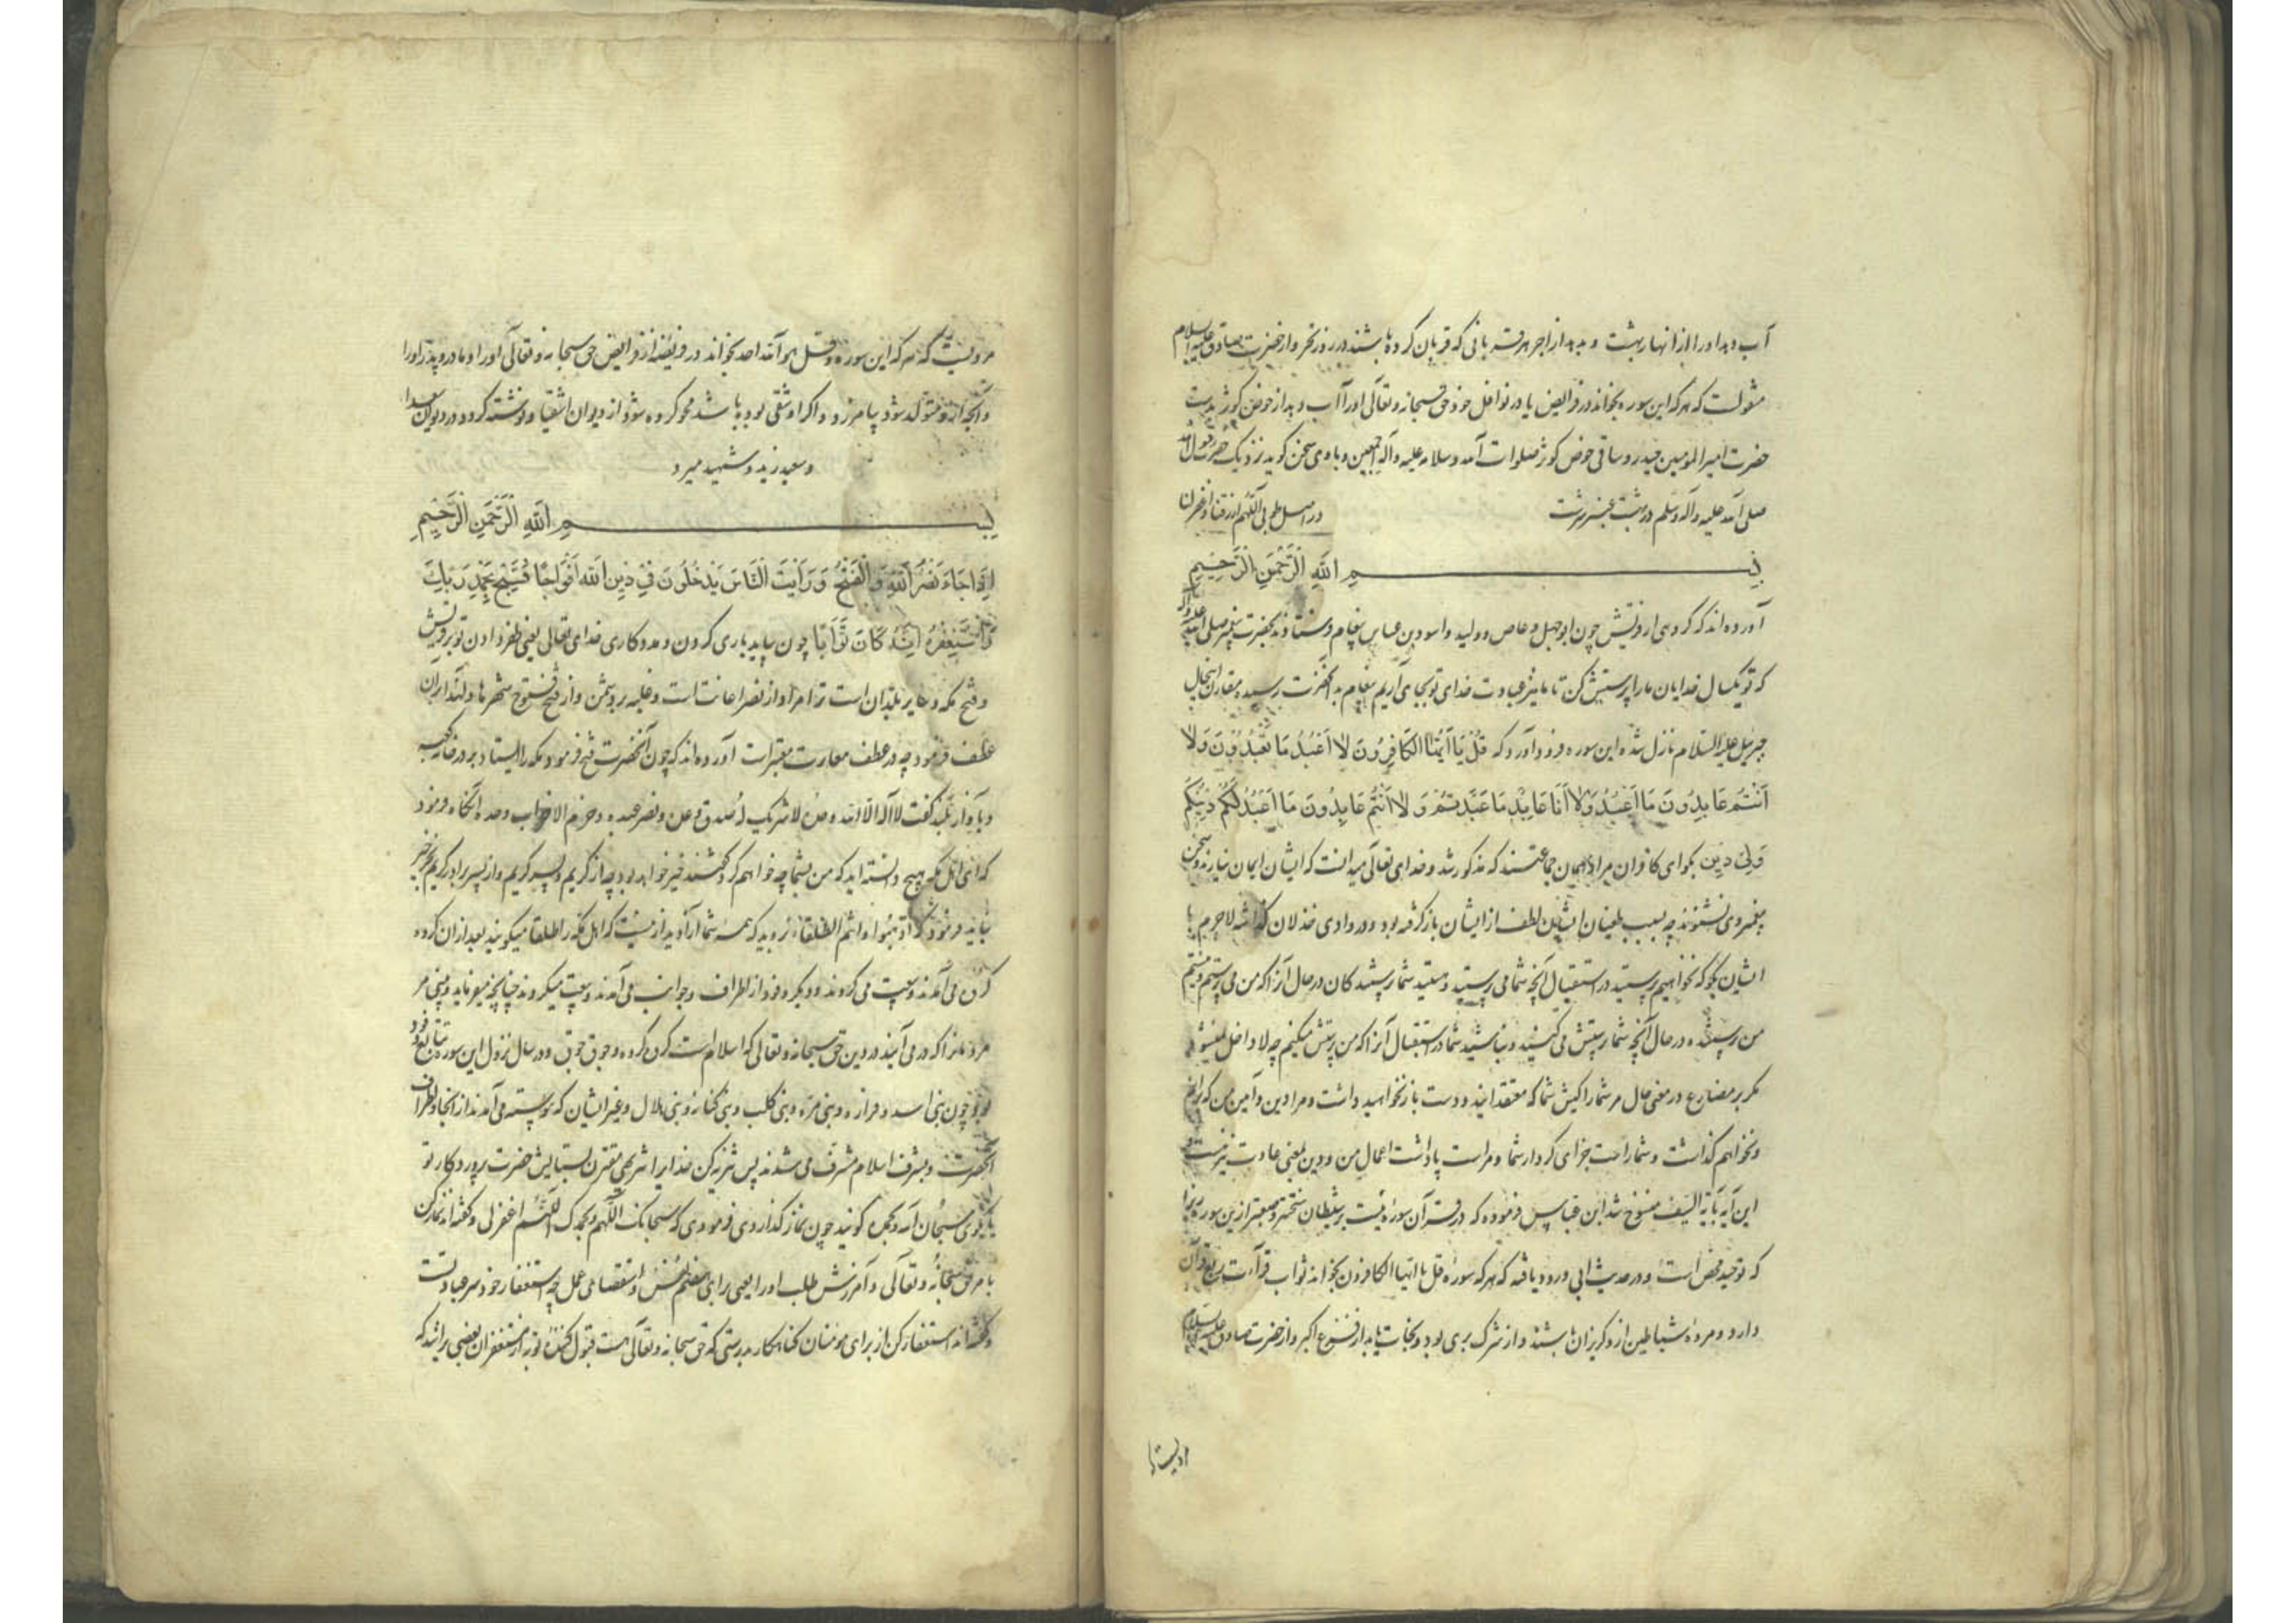 آب دهد او را از انهار بهشت و بدهد از اجر هر قربانی که قربان کرده باشند در روز نحر و از حضرت صادق علیه السلام
منقولست که هر که این سوره بخواند در فرایض یا در نوافل خود حق سبحانه و تعالی او را آب دهد از حوض کوثر بدست
حضرت امیر المومنین حیدر و ساقی حوض کوثر صلوات الله و سلامه علیه و آله اجمعین و با وی سخن کوید نزدیک حضرت رسول الله
صلی الله علیه و آله و سلم در بهشت عنبر سرشت در اصل طوبی اللهم ارزقنا و اخواننا
بسم الله الرحمن الرحیم
آورده اند که کروهی از قریش چون ابوجهل و عاص و ولید و اسود بن عباس پیغام فرستادند بحضرت پیغمبر صلی الله علیه و آله
که تو یکسال خدایان ما را پرستش کن تا ما نیز عبادت خدای تو بجای آریم پیغام به آنحضرت رسید مقارن اینحال
جبرئیل علیه السلام نازل شده این سوره فرود آورد که قُلْ یَا اَیُّهَا الکَافِرُونَ لَا اَعْبُدُ مَا تَعْبُدُونَ وَلَا
اَنْتُمْ عَابِدُونَ مَا اَعْبُدُ وَلَا اَنَا عَابِدٌ مَا عَبَدْتُمْ وَلَا اَنْتُمْ عَابِدُونَ مَا اَعْبُدُ لَکُمْ دِینُکُمْ
وَلِیَ دِینِ بکو ای کافران مراد همان جماعتند که مذکور شد و خدای تعالی میدانست که ایشان ایمان نیارند و سخن
پیغمبر وی نشنوند چه بسبب طغیان ایشان لطف از ایشان باز کرفته بود و در وادی خذلان کذاشته لاجرم با
ایشان بکو که نخواهیم پرستید در استقبال آنچه شما می پرستید و نیستید شما پرستندکان در حال آنرا که من می پرستم و نیستم
من پرستنده در حال آنچه شما پرستش می کنید و نباشید شما در استقبال آنرا که من پرستش میکنم چه لا داخل نمیشود
مکر بر مضارع در معنی حال مر شما را کیش شما که معتقدانید و دست باز نخواهید داشت و مرا دین و آیین من که برانم
و نخواهم کذاشت و شما راست جزای کردار شما و مراست پاداشت اعمال من و دین بمعنی عادت نیز هست
این آیه بآیة السیف منسوخ شد ابن عباس فرموده که در قرآن سورۀ نیست بر شیطان سختتر و صعبتر ازین سوره زیرا
که توحید محض است و در حدیث ابی ورود یافته که هر که سورۀ قل یا ایها الکافرون بخواند ثواب قرآءت ربع قرآن
دارد و مردۀ شیاطین ازو کریزان باشند و از شرک بری بود و نجات یابد از فزع اکبر و از حضرت صادق علیه السلام
مرویست که هر که این سوره و قل هو الله احد بخواند در فریضه از فرایض حق سبحانه و تعالی او را و مادر و پدر او را
و آنچه ازو متولد شود بیامرزد و اکر او شقی بوده باشد محو کرده شود از دیوان اشقیا و نوشته کردد در دیوان سعدا
و سعید زید و شهید میرد
بسم الله الرحمن الرحیم
اِذَا جَاءَ نَصْرُ اللهِ وَالْفَتْحُ وَرَاَیْتَ النَّاسَ یَدْخُلُونَ فِی دِینِ اللهِ اَفْوَاجًا فَسَبِّحْ بِحَمْدِ رَبِّکَ
وَاسْتَغْفِرْهُ اِنَّهُ کَانَ تَوَّابًا چون بیاید یاری کردن و مددکاری خدای تعالی یعنی ظفر دادن تو بر قریش
و فتح مکه و سایر بلدان است ترا مراد از نصر اعانت است و غلبه بر دشمن و از فتح فتوح شهرها و لهذا بران
عطف فرمود چه در عطف مغایرت معتبرات آورده اند که چون آنحضرت فتح فرمود مکه را ایستاد بر در خانه کعبه
و بآواز بلند کفت لا اله الا الله وحده لا شریک له صدق وعده و نصر عبده و هزم الاحزاب وحده آنکاه فرمود
که ای اهل مکه هیچ دانسته اید که من بشما چه خواهم کرد کفتند خیر خواهد بود چه از کریم و پسر کریم و از پسر برادر کریم بجز خیر
نیاید فرمود که اذهبوا و انتم الطلقاء بروید که همه شما آزادید ازینست که اهل مکه را طلقا میکویند بعد ازان کروه
کروه می آمدند و بیعت می کردند و دیکر وفود از اطراف و جوانب می آمدند و بیعت میکردند چنانچه میفرماید و بینی مر
مردمانرا که در می آیند در دین حق سبحانه و تعالی که اسلام است کروه کروه و جوق جوق و در سال نزول این سوره تتابع وفود
بود چون بنی اسد و فزاره و بنی مره و بنی کلب و بنی کنانه و بنی هلال و غیر ایشان که پیوسته می آمدند از انحا و اطراف
آنحضرت و بشرف اسلام مشرف می شدند پس تنزیه کن خدایرا تنزیهی مقترن بستایش حضرت پروردکار تو
یا بکوی سبحان الله و بحمده کویند چون نماز کذاردی فرمودی که سبحانک اللهم و بحمدک اللهم اغفر لی و کفته اند نماز کن
بامر حق سبحانه و تعالی و آمرزش طلب او را یعنی برای هضم نفس و استقصار عمل چه استغفار خود سر عبادتست
و کفته اند استغفار کن از برای مومنان کناهکار بدرستی که حق سبحانه و تعالی هست قبول کننده توبه از مستغفران بعضی برانند که